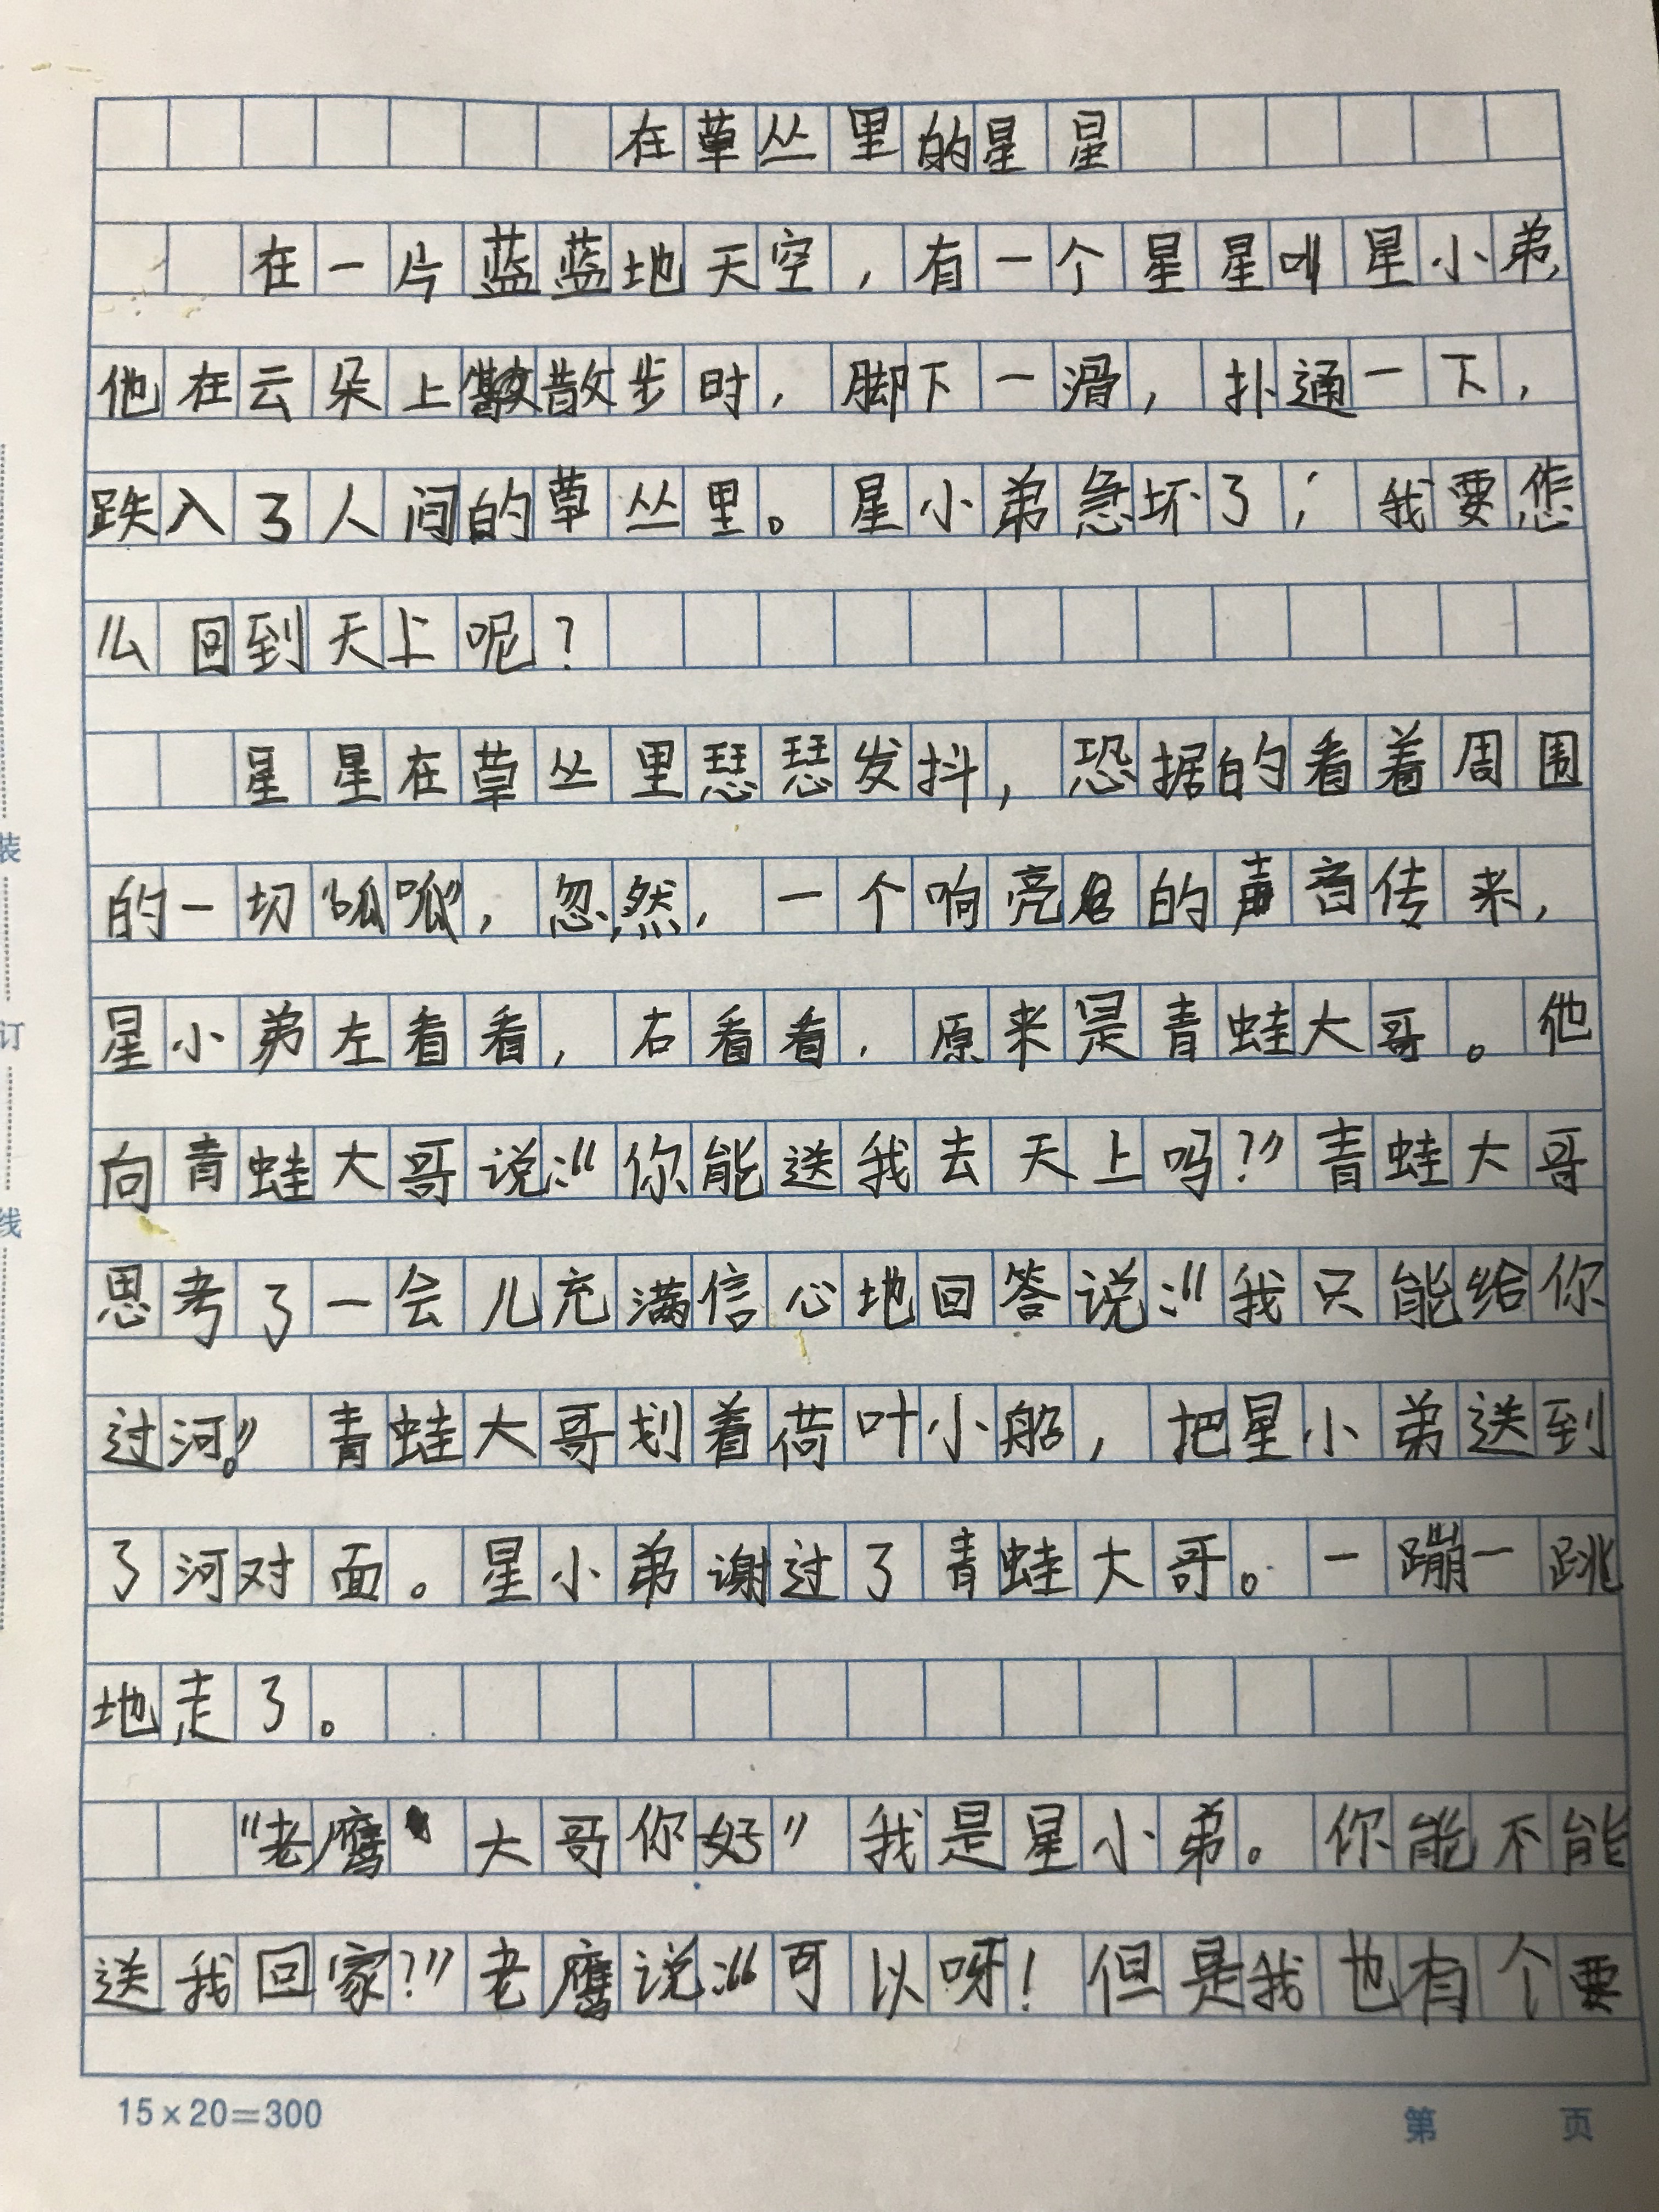 在草丛里的星星
在一片蓝蓝地天空，有一个星星叫星小弟，
他在云朵上散步时，脚下一滑，扑通一下，
跌入了人间的草丛里。星小弟急坏了；我要怎
么回到天上呢？
星星在草丛里瑟瑟发抖，恐据的看着周围
的一切“呱呱”，忽然，一个响亮的声音传来，
星小弟左看看，右看看，原来是青蛙大哥。他
向青蛙大哥说：“你能送我去天上吗？”青蛙大哥
思考了一会儿充满信心地回答说：“我只能给你
过河。”青蛙大哥划着荷叶小船，把星小弟送到
了河对面。星小弟谢过了青蛙大哥。一蹦一跳
地走了。
“老鹰大哥你好”我是星小弟。你能不能
送我回家？”老鹰说：“可以呀！但是我也有个要
15×20=300
第 页
装
订
线